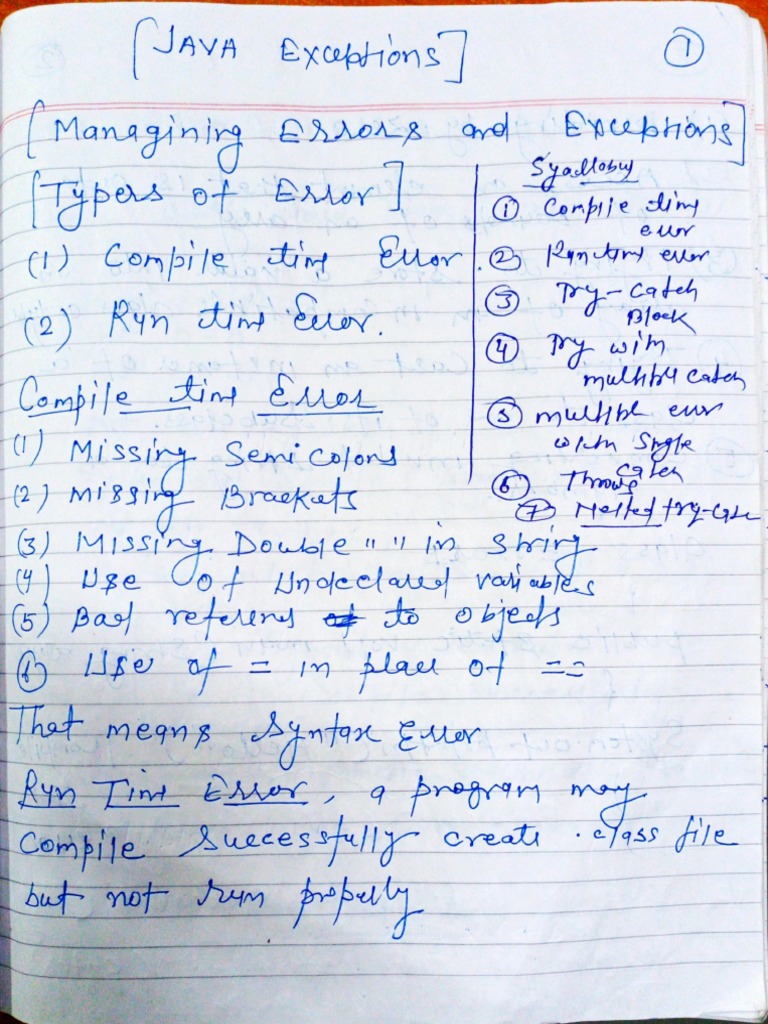 [JAVA Exceptions]
1
[Managining Errors and Exceptions]
[Types of Error]
(1) Compile time Error.
(2) Run time Error.
Syallobus
1 Compile time error
2 Run time error
3 Try-Catch
Block
4 Try with
multible Catch
5 multible error
with Single
Catch
6 Throws
7 Nested try-catch
Compile time Error
(1) Missing Semicolons
(2) missing Brackets
(3) Missing Double " " in string
(4) Use of Undeclared variables
(5) Bad referens to objects
6 Use of = in place of ==
That means Syntax Error
Run Time Error, a program may
Compile Successfully create .class file
but not run properly